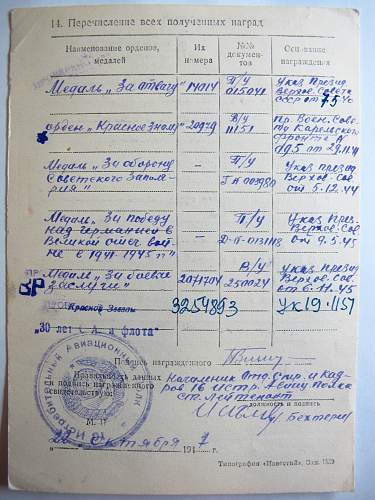 14. Перечисление всех полученных наград
Наименование орденов, медалей
Их номера
№№ документов
Основание награждения
Медаль „За отвагу"
14014
П/у 015041
Указ Презид. Верхов. Совета СССР от
орден „Красное Знам"
20979
В/у 11151
Пр. Воен. Сов-та Карельского фронта №
Медаль „За оборону Советского Заполярия"
—
П/у
Указ презид. Верхов. Сов. от 5.12.44
Медаль „За победу над германией в Великой отеч. войне в 1941-1945 гг"
—
П/у
Д-П-0131118
Указ През. Верхов. Сов. от 9.5.45
Медаль „За боевые заслуги"
2071704
В/у 250024
Указ Презид. Верхов. Сов. от 6.11.45
ВР
Красной Звезды
3254893
Ук 19. 1157
"30 лет С.А. и флота"
Подпись награжденного
Правильность данных и подпись награжденного свидетельствую:
Начальник Отд. Стр. и Кадров 16 Истр. Авиц Полка
ст. Лейтенант
должность и подпись
М. П.
Октября 194 7
Типография «Известий». Зак.